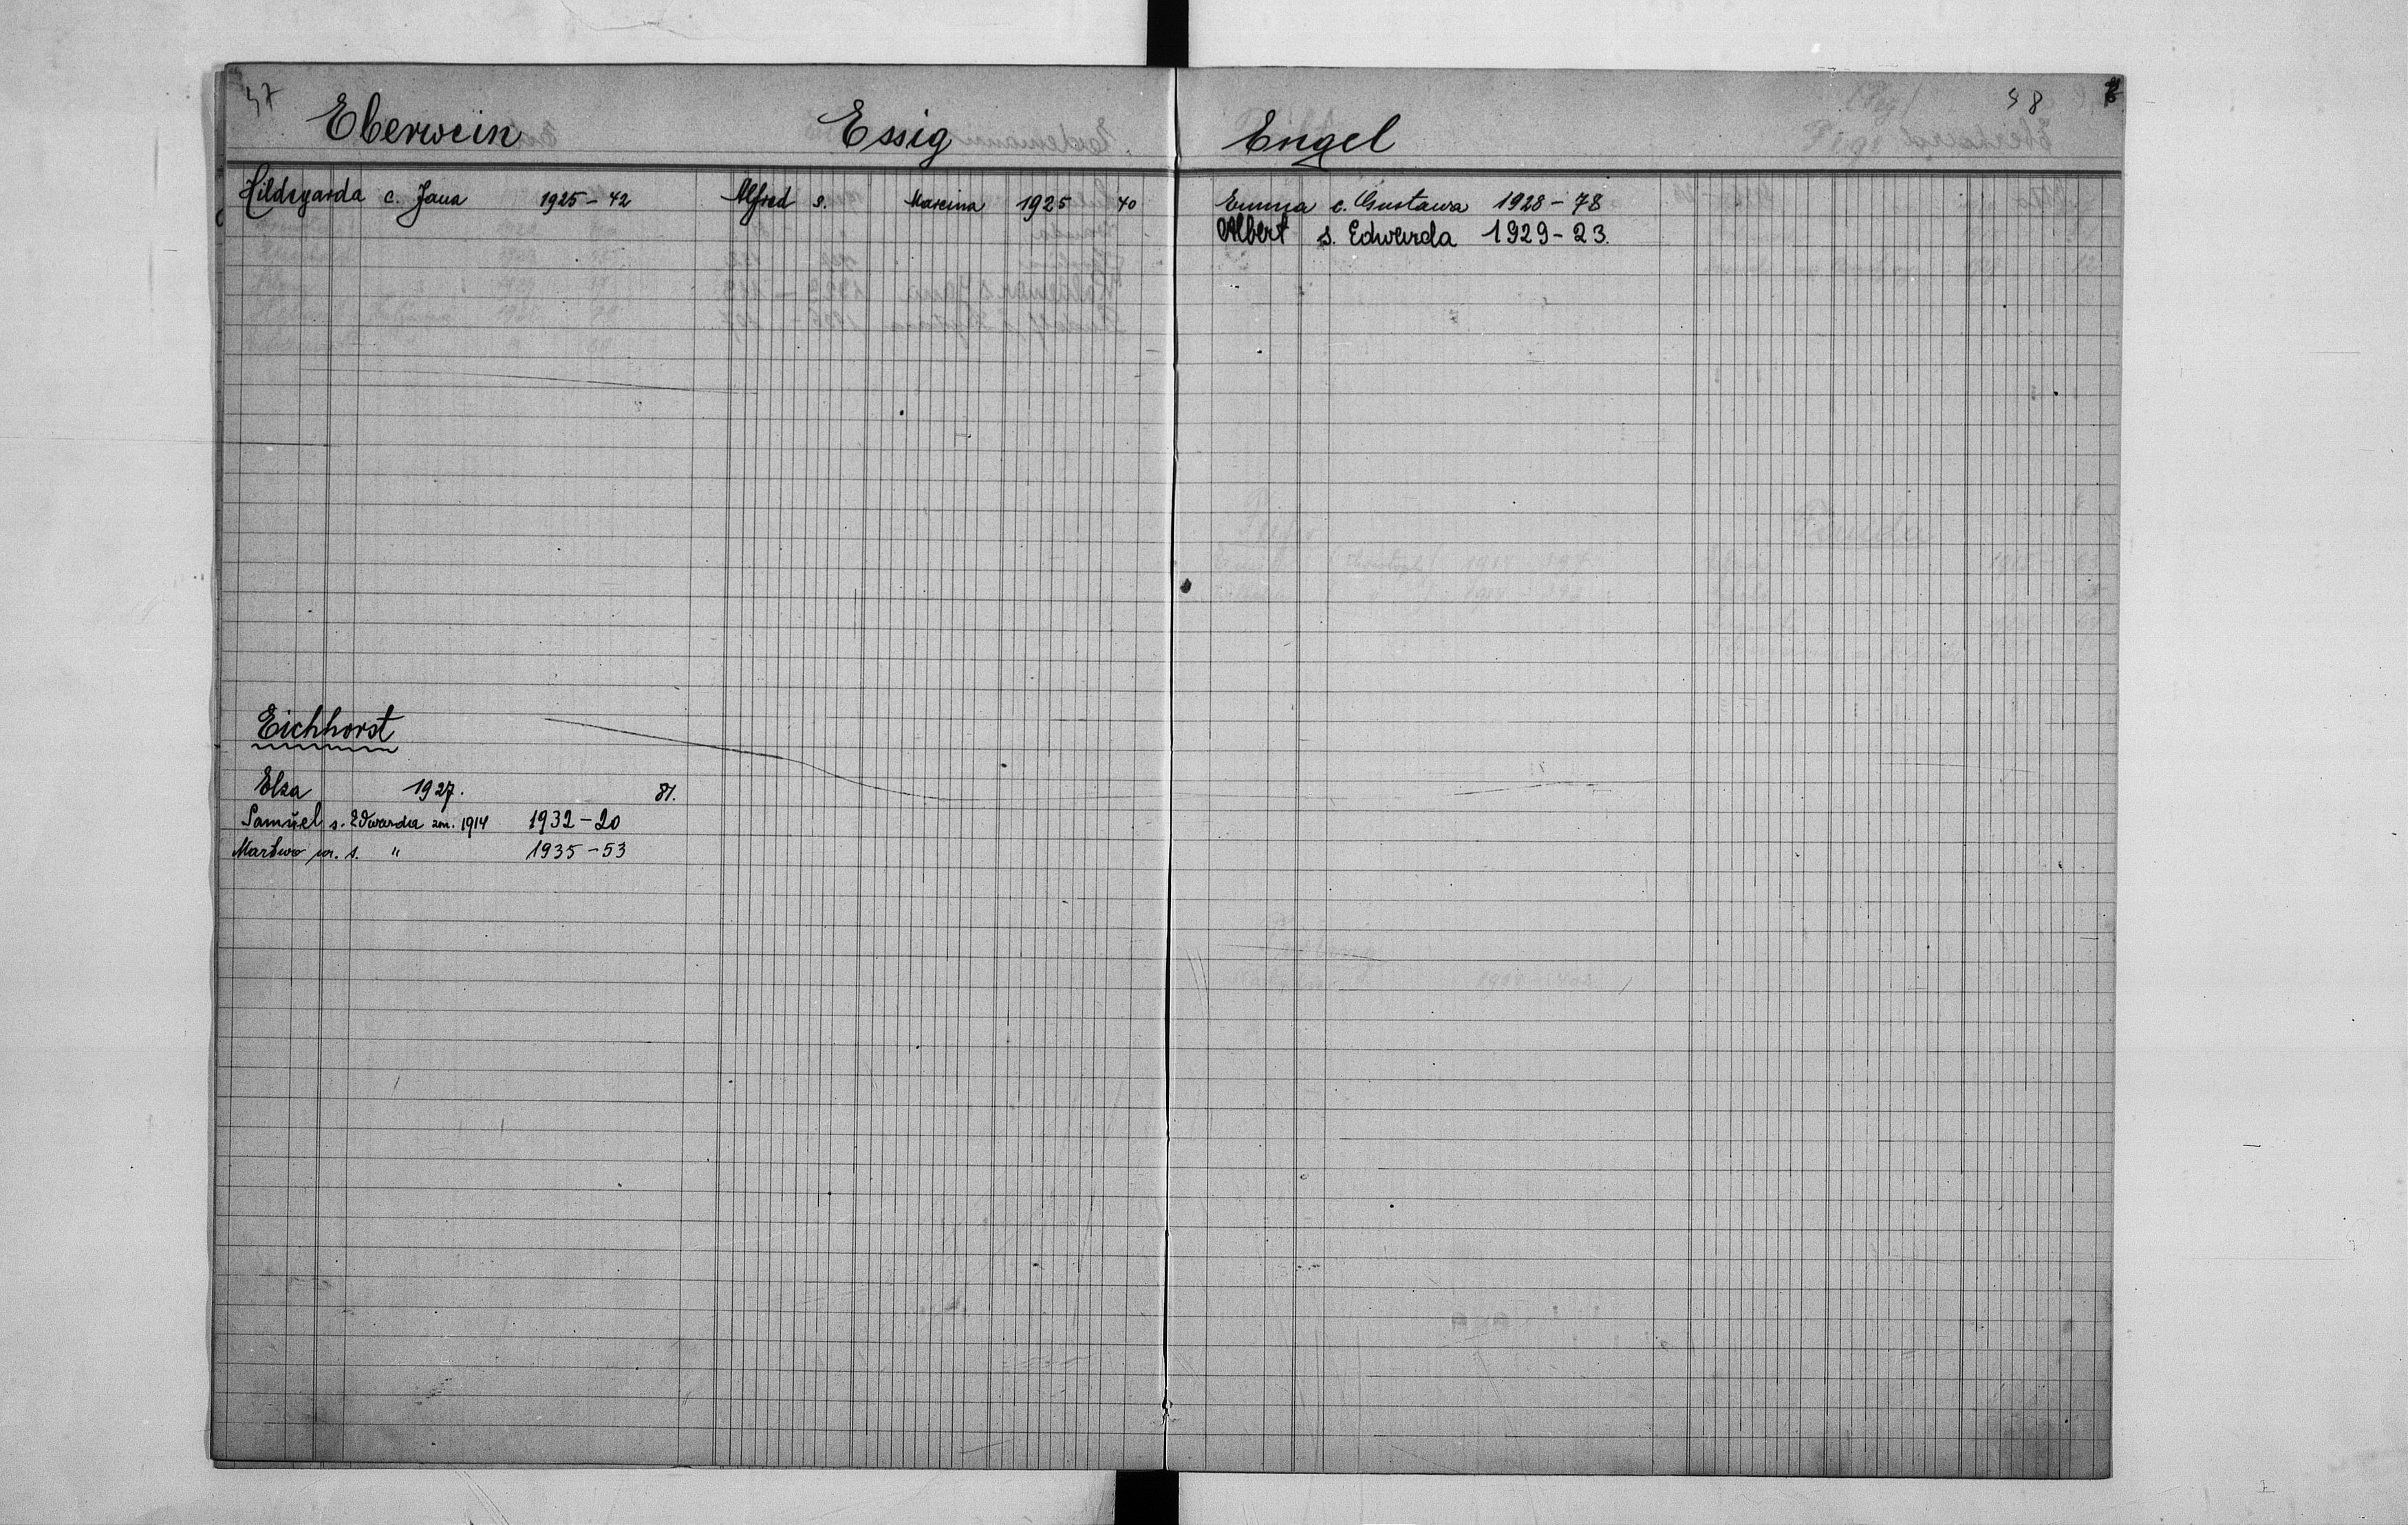 47
Eberwein
Hildegarda c. Jana 1925 - 42
Eichhorst
Elza 1927. 81.
Samuel s. Edwarda zm. 1914 1932 - 20
Martwo ur. s. " 1935 - 53
Essig
Alfred s. Marcina 1925 40
48
Engel
Emma c. Gustawa 1928 - 78
Albert s. Edwarda 1929 - 23.